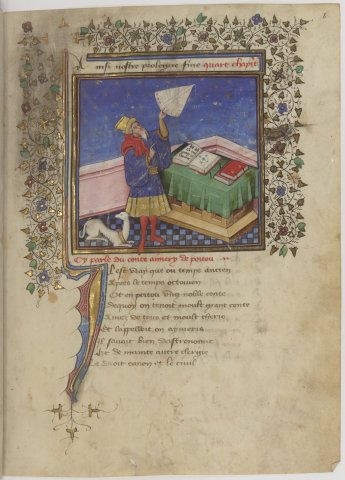 Ainsi nostre prologue fine quart chapit
Cy parle du conte aimery de poitou
Il est vray que ou temps ancien
Apres le temps octovien
Ot en poitou ung noble conte
Dequoy on tenoit moult grant conte
Amez de tous et moult cheris
Et lappelloit on aymeris
Il savoit bien dastronomie
Et de mainte autre
Le droit canon et le civil